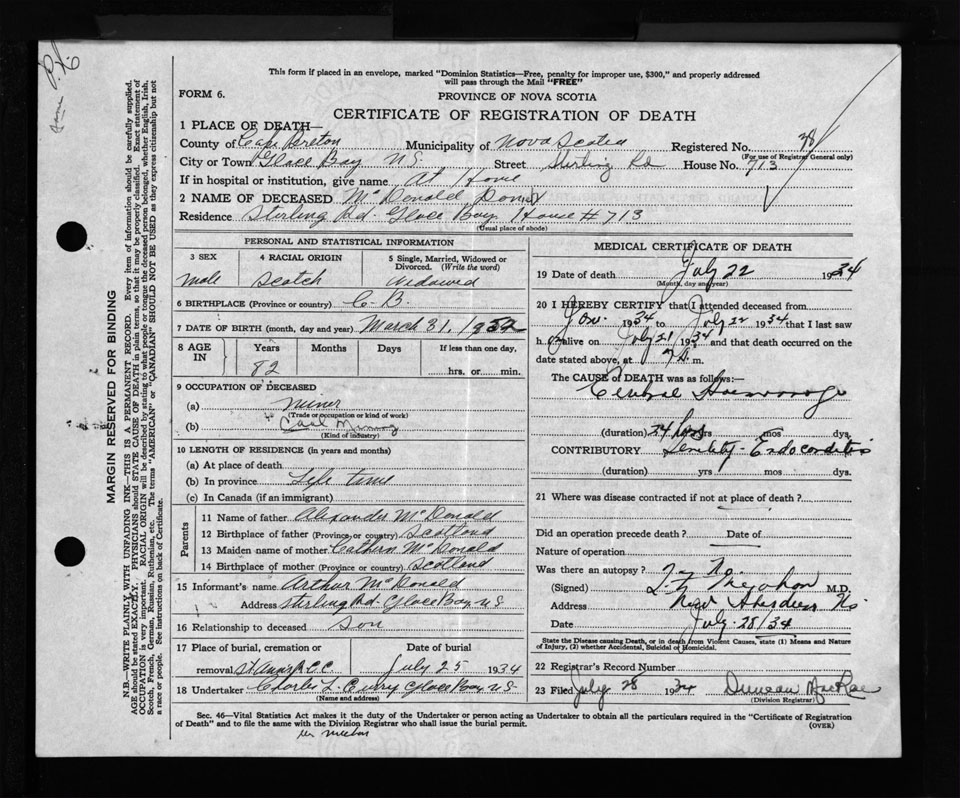 This form if placed in an envelope, marked "Dominion Statistics—Free, penalty for improper use, $300," and properly addressed
will pass through the Mail "FREE"
FORM 6.
PROVINCE OF NOVA SCOTIA
CERTIFICATE OF REGISTRATION OF DEATH
1 PLACE OF DEATH—
County of Cape Breton Municipality of Nova Scotia Registered No.
(For use of Registrar General only)
City or Town Glace Bay N.S. Street Sterling Rd House No. 713
If in hospital or institution, give name At Home
2 NAME OF DECEASED McDonald
Residence Sterling Rd. Glace Bay. House # 713
(Usual place of abode)
PERSONAL AND STATISTICAL INFORMATION
3 SEX 4 RACIAL ORIGIN 5 Single, Married, Widowed or Divorced. (Write the word)
Male Scotch Widowed
6 BIRTHPLACE (Province or country) C. B.
7 DATE OF BIRTH (month, day and year) March 31, 1852
8 AGE IN Years Months Days If less than one day,
82 hrs. or min.
9 OCCUPATION OF DECEASED
(a) Miner
(Trade or occupation or kind of work)
(b) Coal Mining
(Kind of industry)
10 LENGTH OF RESIDENCE (in years and months)
(a) At place of death
(b) In province Life time
(c) In Canada (if an immigrant)
Parents
11 Name of father Alexander McDonald
12 Birthplace of father (Province or country) Scotland
13 Maiden name of mother Cathern McDonald
14 Birthplace of mother (Province or country) Scotland
15 Informant's name Arthur McDonald
Address Sterling Rd. Glace Bay N.S
16 Relationship to deceased Son
17 Place of burial, cremation or Date of burial
removal St Anns R.C.C. July 25 1934
18 Undertaker Charles L. Curry Glace Bay N.S
(Name and address)
MEDICAL CERTIFICATE OF DEATH
19 Date of death July 22 1934
(Month, day and year)
20 I HEREBY CERTIFY that I attended deceased from
Jan. 1934 to July 22 1934 that I last saw
h alive on July 21/ 1934 and that death occurred on the
date stated above, at m.
The CAUSE OF DEATH was as follows:—
Cerebral Haemorrhage
(duration) 24 hrs yrs mos dys.
CONTRIBUTORY Senility - Endocarditis
(duration) yrs mos dys.
21 Where was disease contracted if not at place of death?
Did an operation precede death? Date of
Nature of operation
Was there an autopsy? No.
(Signed) M.D.
Address New Aberdeen NS
Date July 28/34
State the Disease causing Death, or in death from Violent Causes, state (1) Means and Nature
of Injury, (2) whether Accidental, Suicidal or Homicidal.
22 Registrar's Record Number
23 Filed July 28 1934 Duncan MacRae
(Division Registrar)
Sec. 46—Vital Statistics Act makes it the duty of the Undertaker or person acting as Undertaker to obtain all the particulars required in the "Certificate of Registration
of Death" and to file the same with the Division Registrar who shall issue the burial permit. (OVER)
MARGIN RESERVED FOR BINDING
N.B.—WRITE PLAINLY, WITH UNFADING INK—THIS IS A PERMANENT RECORD. Every item of information should be carefully supplied.
AGE should be stated EXACTLY. PHYSICIANS should STATE CAUSE OF DEATH in plain terms, so that it may be properly classified. Exact statement of
OCCUPATION is very important. RACIAL ORIGIN will be described by stating to what people or tongue the deceased person belonged, whether English, Irish,
Scotch, French, German, Russian, Ruthenian, etc. The terms "AMERICAN" or "CANADIAN" SHOULD NOT BE USED as they express citizenship but not
a race or people. See instructions on back of Certificate.